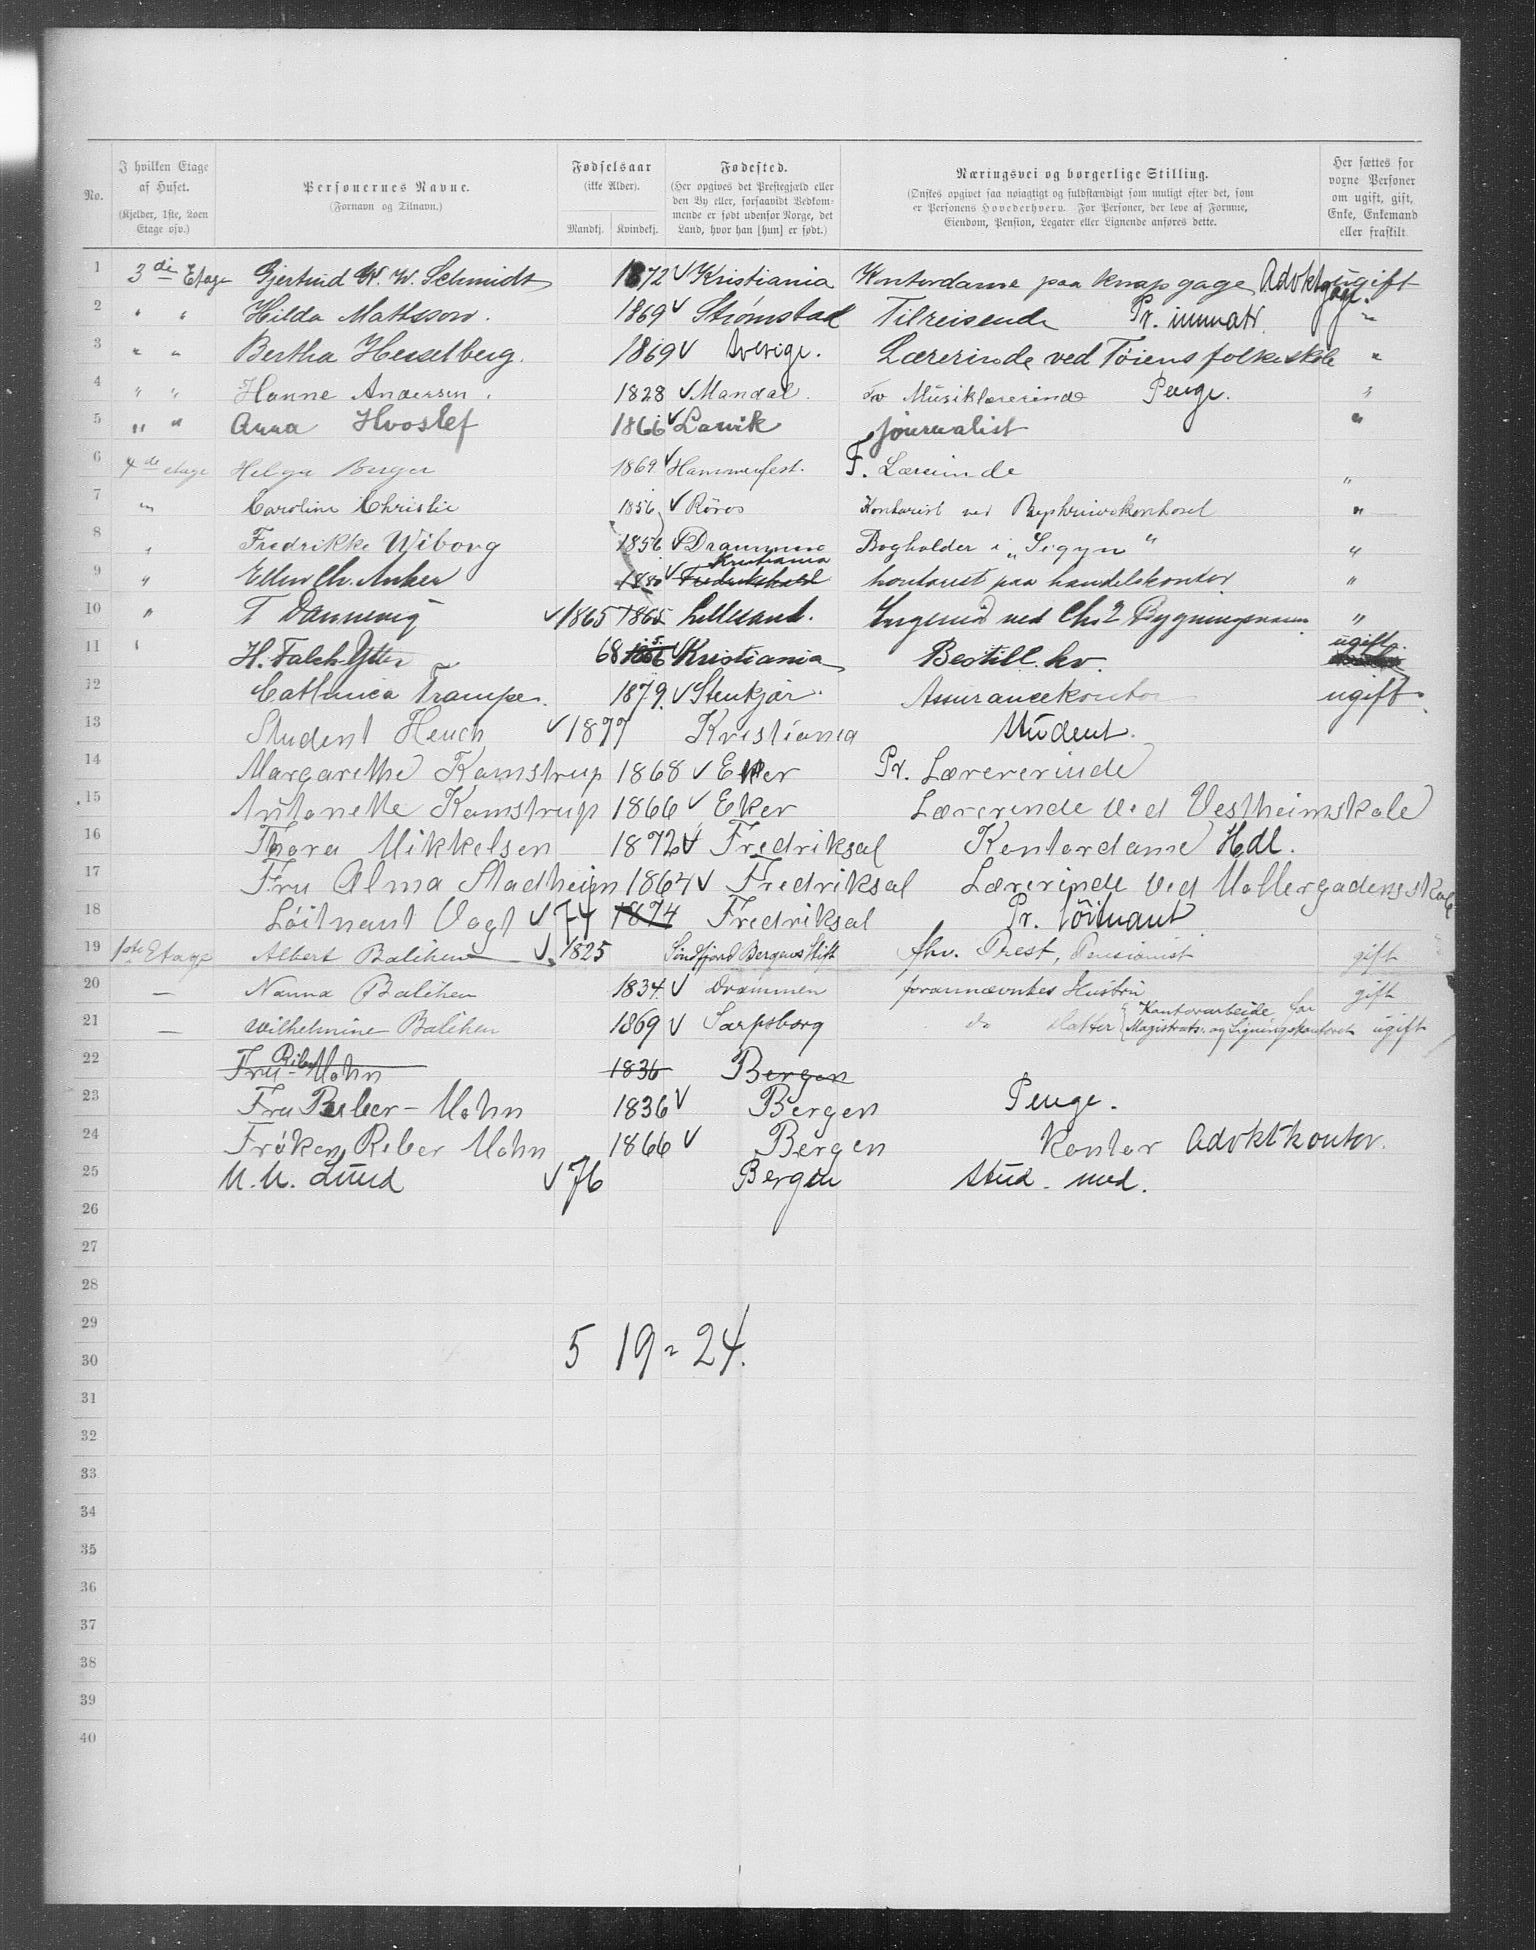 No.
I hvilken Etage af Huset. (Kjelder, 1ste, 2den Etage osv.)
Personernes Navne. (Fornavn og Tilnavn.)
Fødselsaar (ikke Alder). Mandkj. Kvindekj.
Fødested. (Her opgives det Prestegjæld eller den By eller, forsaavidt Vedkommende er født udenfor Norge, det Land, hvor han [hun] er født.)
Næringsvei og borgerlige Stilling. (Ønskes opgivet saa nøiagtigt og fuldstændigt som muligt efter det, som er Personens Hovederhverv. For Personer, der leve af Formue, Eiendom, Pension, Legater eller Lignende anføres dette.
Her sættes for voxne Personer om ugift, gift, Enke, Enkemand eller fraskilt.
1 3die Etage Gjertrud W. W. Schmidt 1872 √ Kristiania Kontordame paa knap gage Advktgage. ugift
2 " " Hilda Mattsson. 1869 √ Strømstad Tilreisende Pr. immatr. "
3 " " Bertha Hesselberg. 1869 √ Sverige. Lærerinde ved Tøiens folkeskole "
4 " " Hanne Andersen. 1828 √ Mandal. Fv Musiklærerinde Penge. "
5 " " Anna Hvoslef 1866 √ Lavik journalist "
6 4de etage Helga Berger 1869 √ Hammerfest. F. Lærerinde "
7 " Caroline Christie 1856 √ Røros Kontorist ved "
8 " Fredrikke Wiborg 1856 √ Drammen Bogholder i "Sigyn" "
9 " Ellen Ch. Anker 1880 √ Fredrikshald Kristiania kontorist paa handelskontor "
10 " T Dannevig √ 1865 1865 Lillesand. Ingeniør ved Chr. Bygningsvæsen "
11 " H. Falch Ytter 68 √ Kristiania Bestill. hv. ugift
12 Cathinca Trampe. 1879. √ Stenkjær. Assurancekontor ugift.
13 Student Heuch √ 1877 Kristiania Student.
14 Margarethe Kamstrup 1868 √ Eker Pr. Lærererinde
15 Antonette Kamstrup 1866 √ Eker Lærerinde ved Vestheimskole
16 Thora Mikkelsen 1872 √ Fredriksal Kontordame Hdl.
17 Fru Alma Stadheim 1864 √ Fredriksal Lærerinde ved Møllergadens skole
18 Løitnant Vogt √ 74 1874 Fredriksal Pr. løitnant
19 1ste Etage Albert Balchen √ 1825 Søndfjord Bergens Stift fhv. Prest, Pensionist gift
20 — Nanna Balchen 1834. √ Drammen forannævntes Hustru gift
21 — Wilhelmine Balchen 1869 √ Sarpsborg do datter Kontorarbeide for Magistrats- og Ligningskontoret ugift
22 Fru Riber Mohn 1836 Bergen
23 Fru Riber-Mohn 1836 √ Bergen Penge.
24 Frøken Riber Mohn 1866 √ Bergen Kontor Advktkontor.
25 M. M. Lund √ 76 Bergen stud. med.
26
27
28
29
5 19 = 24.
30
31
32
33
34
35
36
37
38
39
40